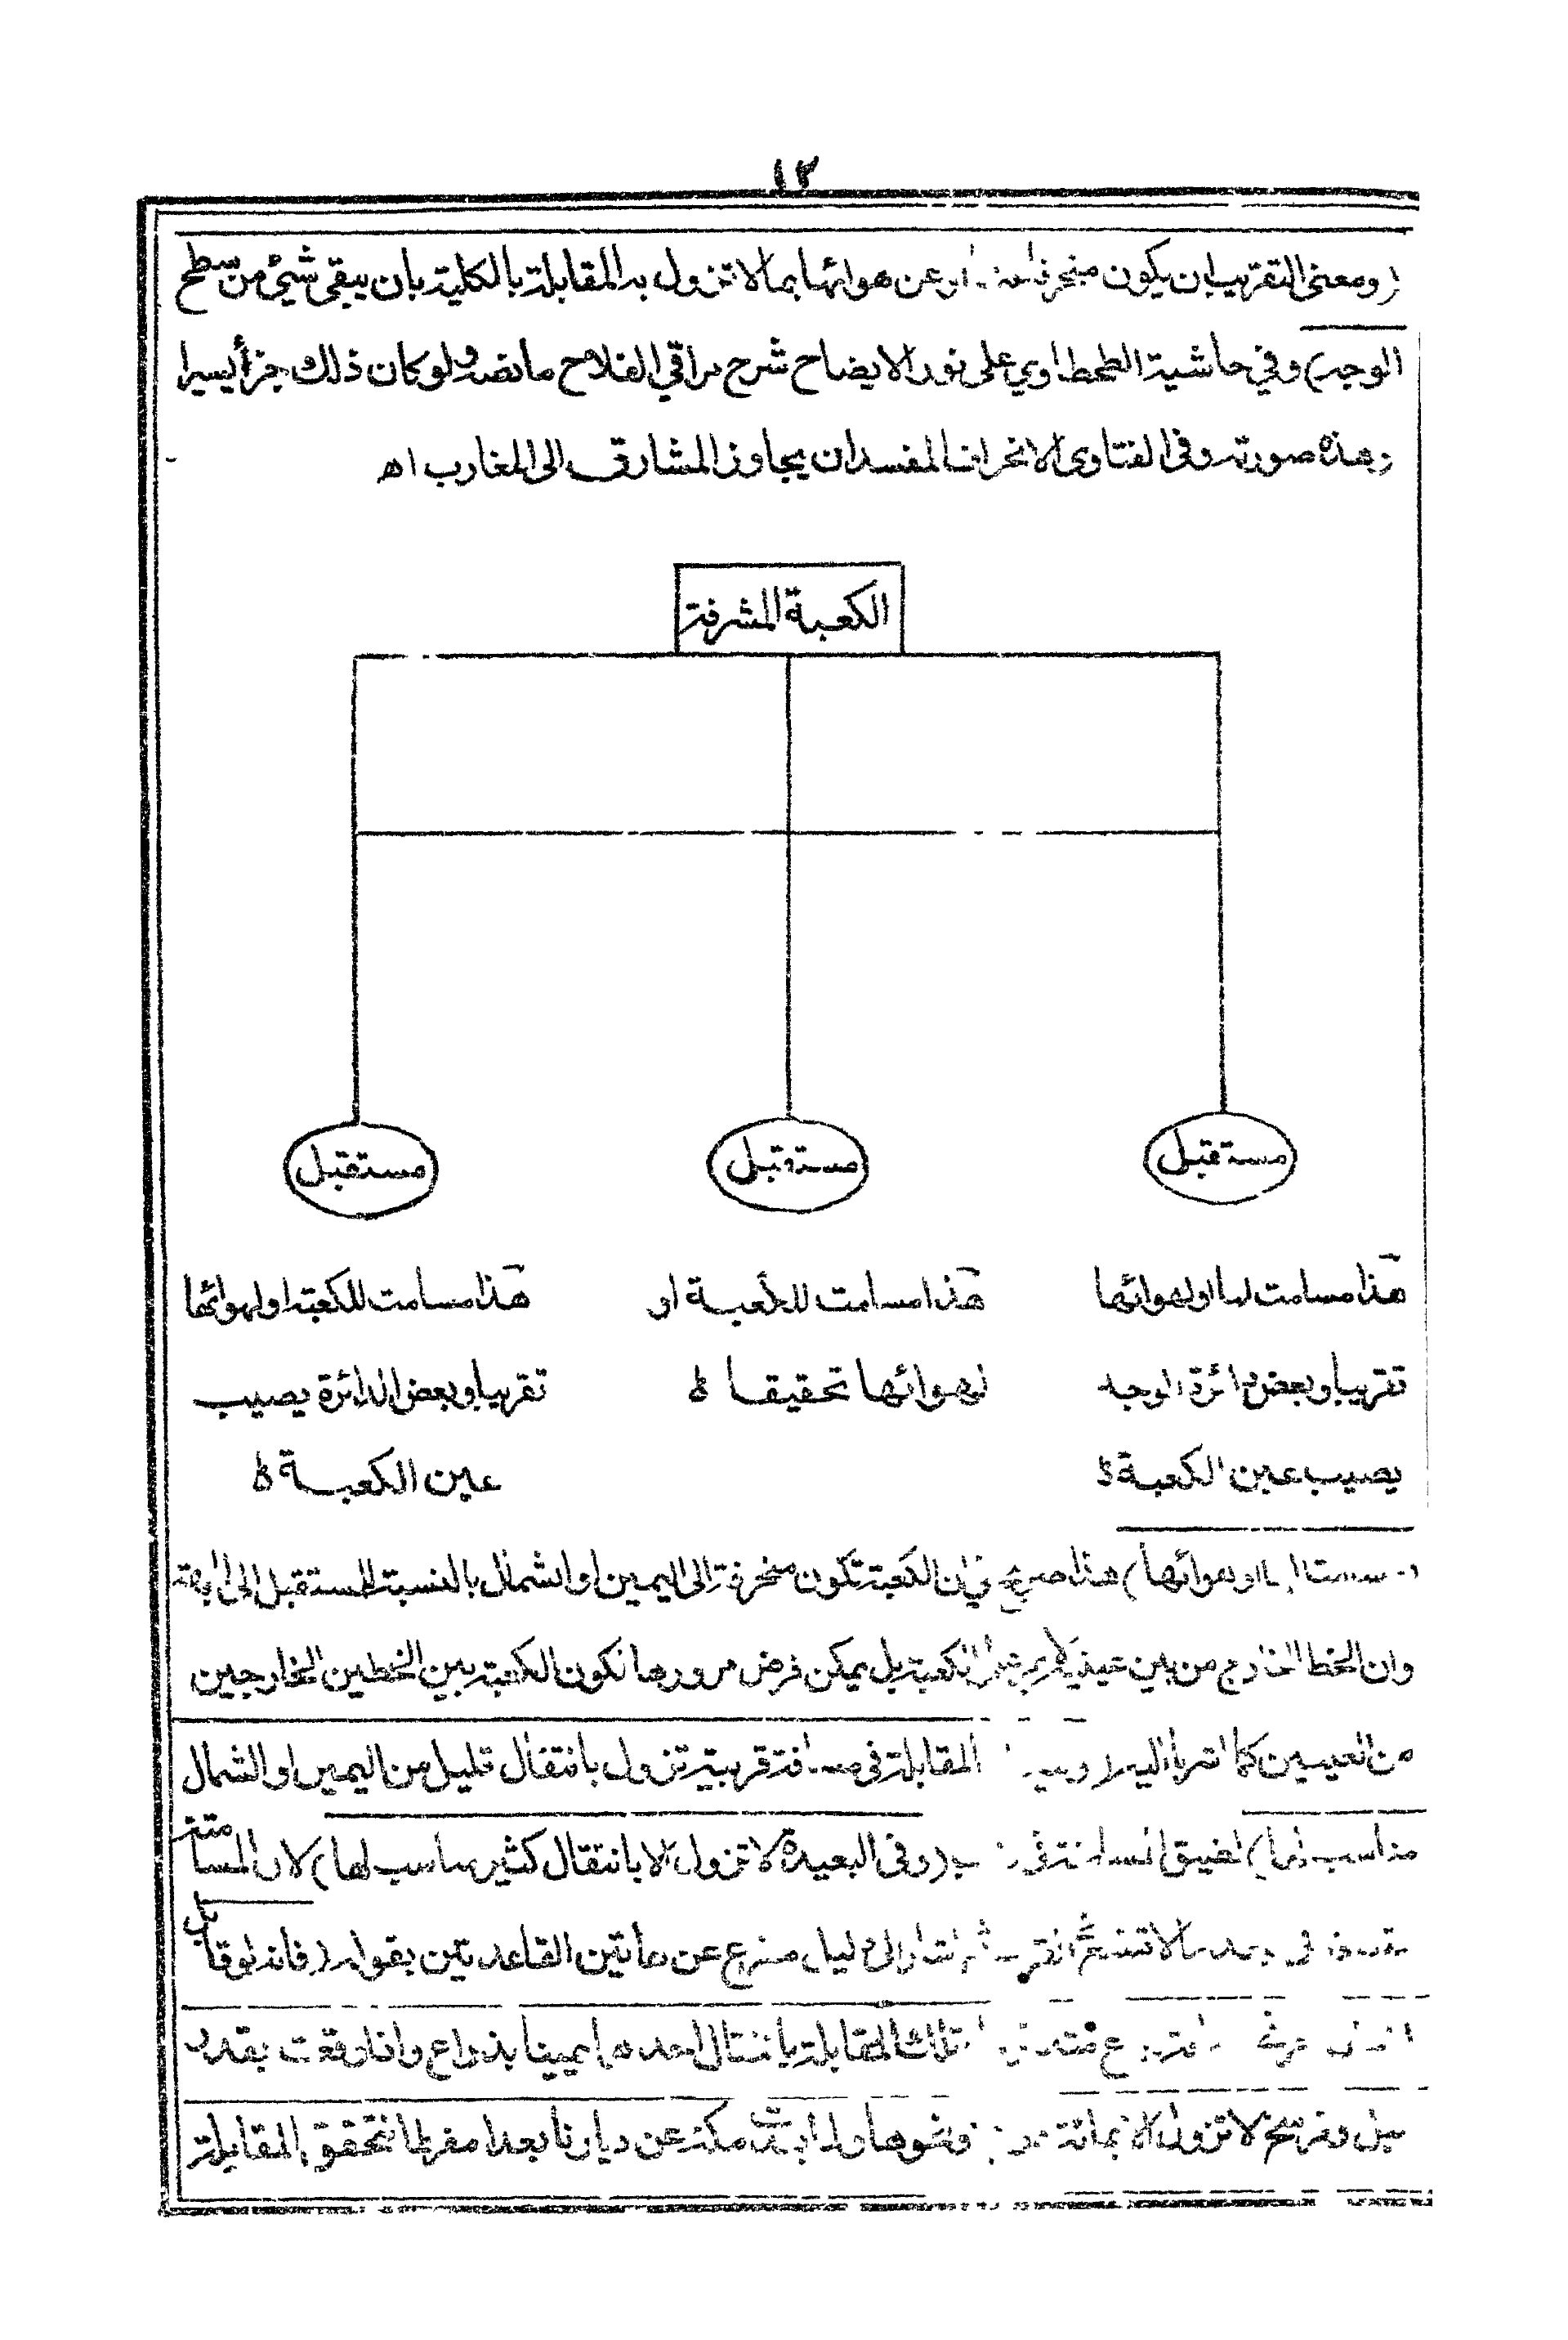 ١٢
(ومعنى التقريب ان يكون منحرفا او عن هوائها بما لا تزول به المقابلة بالكلية بان يبقى شيئ من سطح
الوجه) وفي حاشية الطحطاوي على نور الايضاح شرح مراقي الفلاح ما نصه ولو كان ذلك جزأ يسيرا
وهذه صورته وفى الفتاوى الانحراف المفسد ان يجاوز المشارق الى المغارب اه
الكعبة المشرفة
مستقبل مستقبل مستقبل
هذا مسامت لها او لهوائها
تقريبا وبعض دائرة الوجه
يصيب عين الكعبة
هذا مسامت للكعبة او
لهوائها تحقيقا
هذا مسامت للكعبة او لهوائها
تقريبا وبعض الدائرة يصيب
عين الكعبة
او هوائها) هذا صريح في ان الكعبة تكون منحرفة الى اليمين او الشمال بالنسبة للمستقبل الى
وان الخط الخارج من بين عينيه لا يمر الكعبة بل يمكن فرض مرورها تكون الكعبة بين الخطين الخارجين
من العينين كما اشرنا اليه المقابلة في مسافة قريبة تزول بانتقال قليل من اليمين او الشمال
مناسب لها) لضيق (وفى البعيدة لا تزول الا بانتقال كثير مناسب لها) لان المسامتة
في الى دليل منزع عن هاتين القاعدتين بقوله (فانه لو قابل
تلك المقابلة بانتقال احدهما يمينا بذراع واذا وقعت بقدر
ميل وفرسخ لا تزول الا بمائة ونحوها ولما بعدت مكة عن ديارنا بعدا مفرطا تتحقق المقابلة